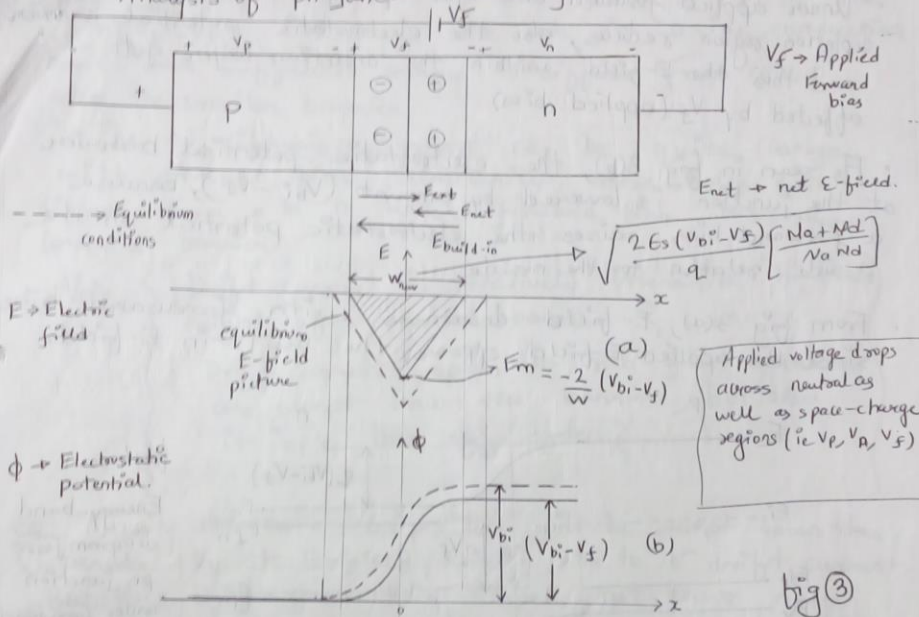 Vf
+ Vp - + Vf - + Vn -
+ p ⊖ ⊕ n -
⊖ ⊕
Vf → Applied
Forward
bias
→ Eext
← Enet
Enet → net E-field.
----→ Equilibrium
conditions
E Ebuild-in
Wnow
√(2Es(Vbi-Vf)/q [Na+Nd/NaNd])
x
E → Electric
field
equilibrium
E-field
picture
(a)
Em = -2/W (Vbi-Vf)
Applied voltage drops
across neutral as
well as space-charge
regions (ie Vp, Vn, Vf)
ϕ
ϕ → Electrostatic
potential.
Vbi (Vbi-Vf) (b)
0 x
fig ③